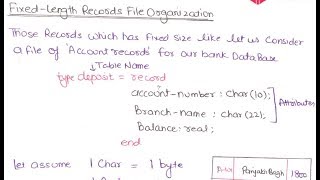 Fixed-Length Records File Organization
Those Records which has fixed size like let us consider
a file of 'Account records' for our bank DataBase
↓Table Name
type deposit = record
account-number : char(10);
Branch-name : char(22);
Balance: real;
Attributes
end
let assume 1 Char = 1 byte
1800